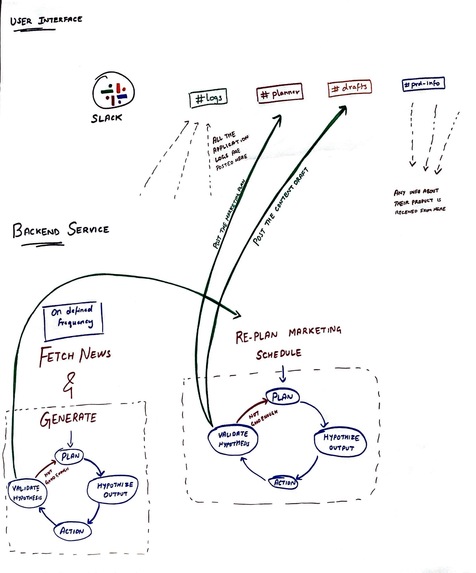 USER INTERFACE
SLACK
# logs
# planner
# drafts
# prd-info
ALL THE
APPLICATION
LOGS ARE
POSTED HERE
POST THE MARKETING PLAN
POST THE CONTENT DRAFT
ANY INFO ABOUT
THEIR PRODUCT IS
RECEIVED FROM HERE
BACKEND SERVICE
On defined
frequency
FETCH NEWS
&
GENERATE
PLAN
NOT
GOOD ENOUGH
VALIDATE
HYPOTHESIS
HYPOTHIZE
OUTPUT
ACTION
RE-PLAN MARKETING
SCHEDULE
PLAN
NOT
GOOD ENOUGH
VALIDATE
HYPOTHESIS
HYPOTHIZE
OUTPUT
ACTION